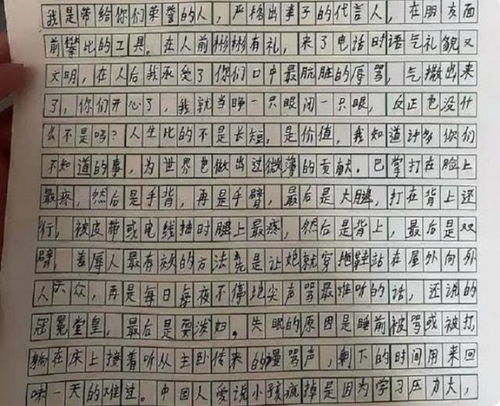 我是带给你们荣誉的人,严格出孝子的代言人,在朋友面
前攀比的工具。在人前彬彬有礼,来了电话时语气礼貌又
文明,在人后我承受了你们口中最肮脏的辱骂,气撒出来
了,你们开心了,我就当睁一只眼闭一只眼,反正也没什
么不是吗?人生比的不是长短,是价值,我知道许多你们
不知道的事,为世界也做出过微薄的贡献。巴掌打在脸上
最疼,然后是手背,再是手臂,最后是大腿,打在背上还
行,被皮带或电线抽时腿上最疼,然后是背上,最后是双
臂,羞辱人最有效的方法先是让她就穿站在屋外向外
人示众,再是每日每夜不停地尖声骂最难听的话,还说的
冠冕堂皇,最后是耍泼妇。失眠的原因是睡前被骂或被打,
躺在床上接着听从主卧传来的谩骂声,剩下的时间用来回
味一天的难过。中国人爱说小孩疯掉是因为学习压力大,